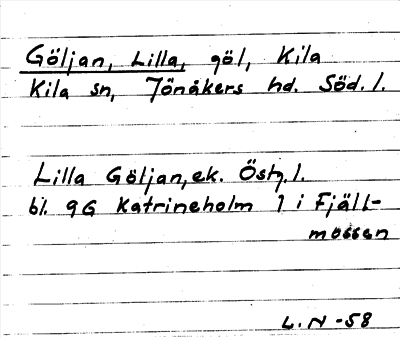 Göljan, Lilla, göl, Kila
Kila sn, Jönåkers hd. Söd. l.
Lilla Göljan, ek. Östg. l.
bl. 9G Katrineholm 1 i Fjäll-
mossen
L. N -58